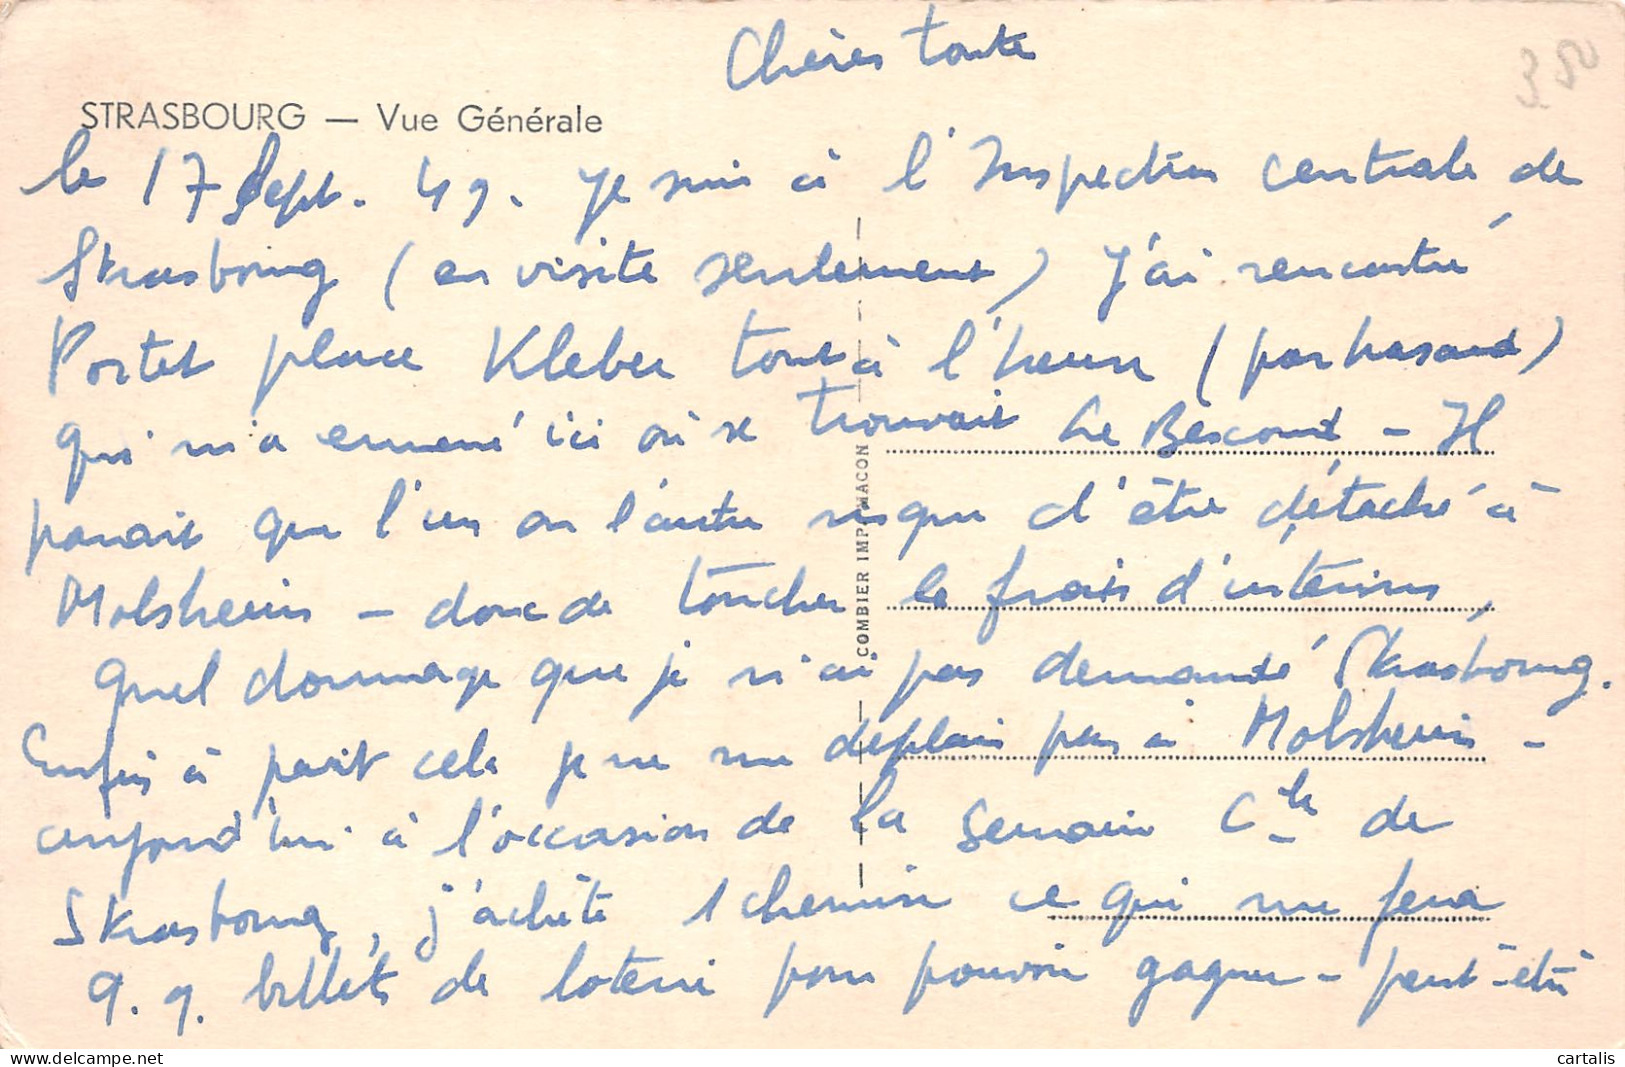 Chères toute
3.50
STRASBOURG — Vue Générale
le 17 Sept. 49. Je suis à l'Inspection centrale de
Strasbourg (en visite seulement) J'ai rencontré
Portet place Kleber tout à l'heure (par hasard)
qui m'a emmené ici où se trouvait Le Bescond - Il
parait que l'un ou l'autre risque d'être détaché à
Molsheim - donc de toucher les frais d'intérims,
Quel dommage que je n'ai pas demandé Strasbourg.
Enfin à part cela je ne me deplais pas à Molsheim -
aujourd'hui à l'occasion de la Semaine Cle de
Strasbourg, j'achète 1 chemise ce qui me fera
q.q. billets de loterie pour pouvoir gagner - peut-être
COMBIER IMP. MACON
cartalis
www.delcampe.net